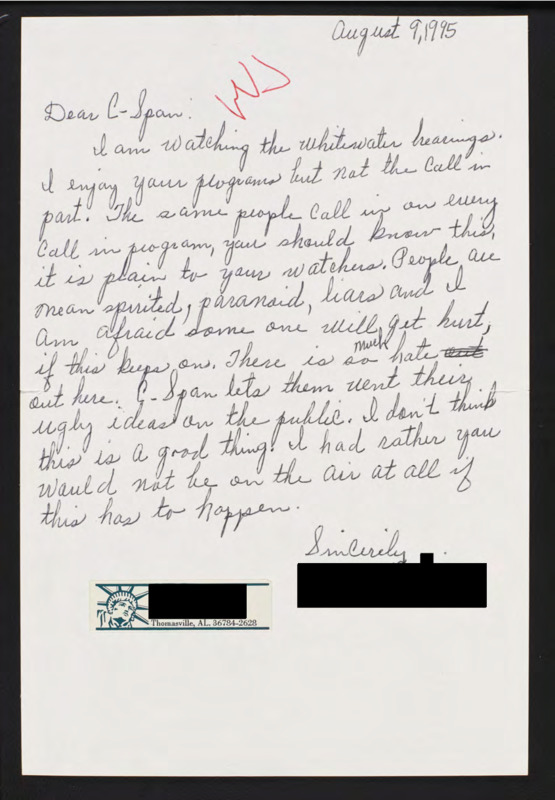 August 9, 1995
WJ
Dear C-Span:
I am watching the Whitewater hearings.
I enjoy your programs but not the call in
part. The same people call in on every
call in program, you should know this,
it is plain to your watchers. People are
mean spirited, paranoid, liars and I
am afraid some one will get hurt,
if this keeps on. There is so much hate
out here. C-Span lets them vent their
ugly ideas on the public. I don't think
this is a good thing. I had rather you
would not be on the air at all if
this has to happen.
Sincerily
Thomasville, AL. 36784-2628